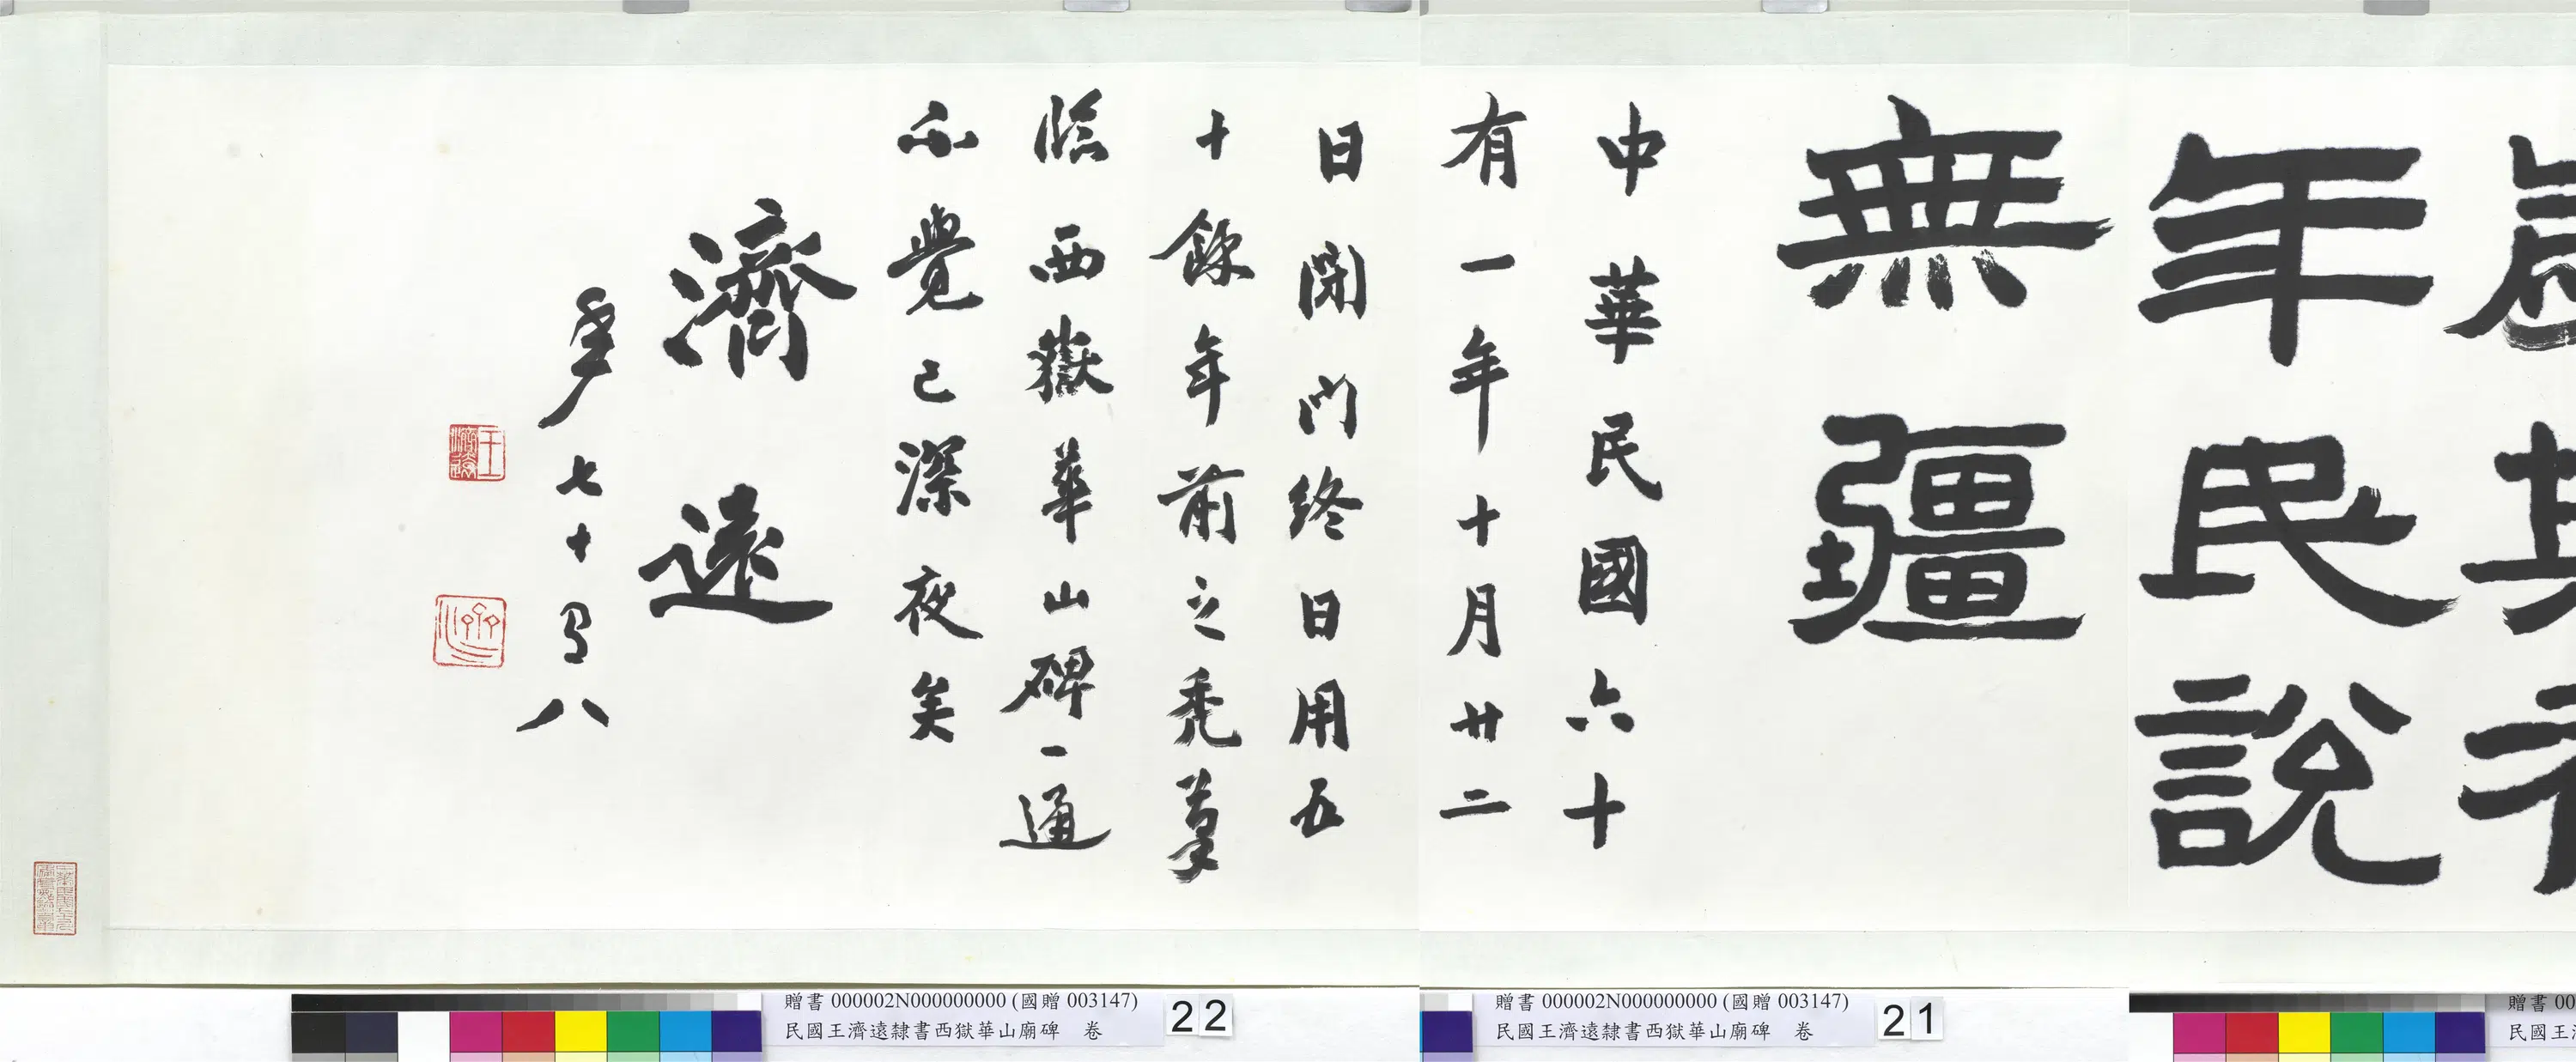 年民說
無疆
中華民國六十
有一年十月廿二
日閉門終日用五
十餘年前之禿筆
臨西嶽華山碑一通
不覺已深夜矣
濟遠
年七十有八
王濟遠
贈書 000002N000000000 (國贈 003147)
民國王濟遠隸書西獄華山廟碑 卷
22
贈書 000002N000000000 (國贈 003147)
民國王濟遠隸書西獄華山廟碑 卷
21
贈書 00
民國王